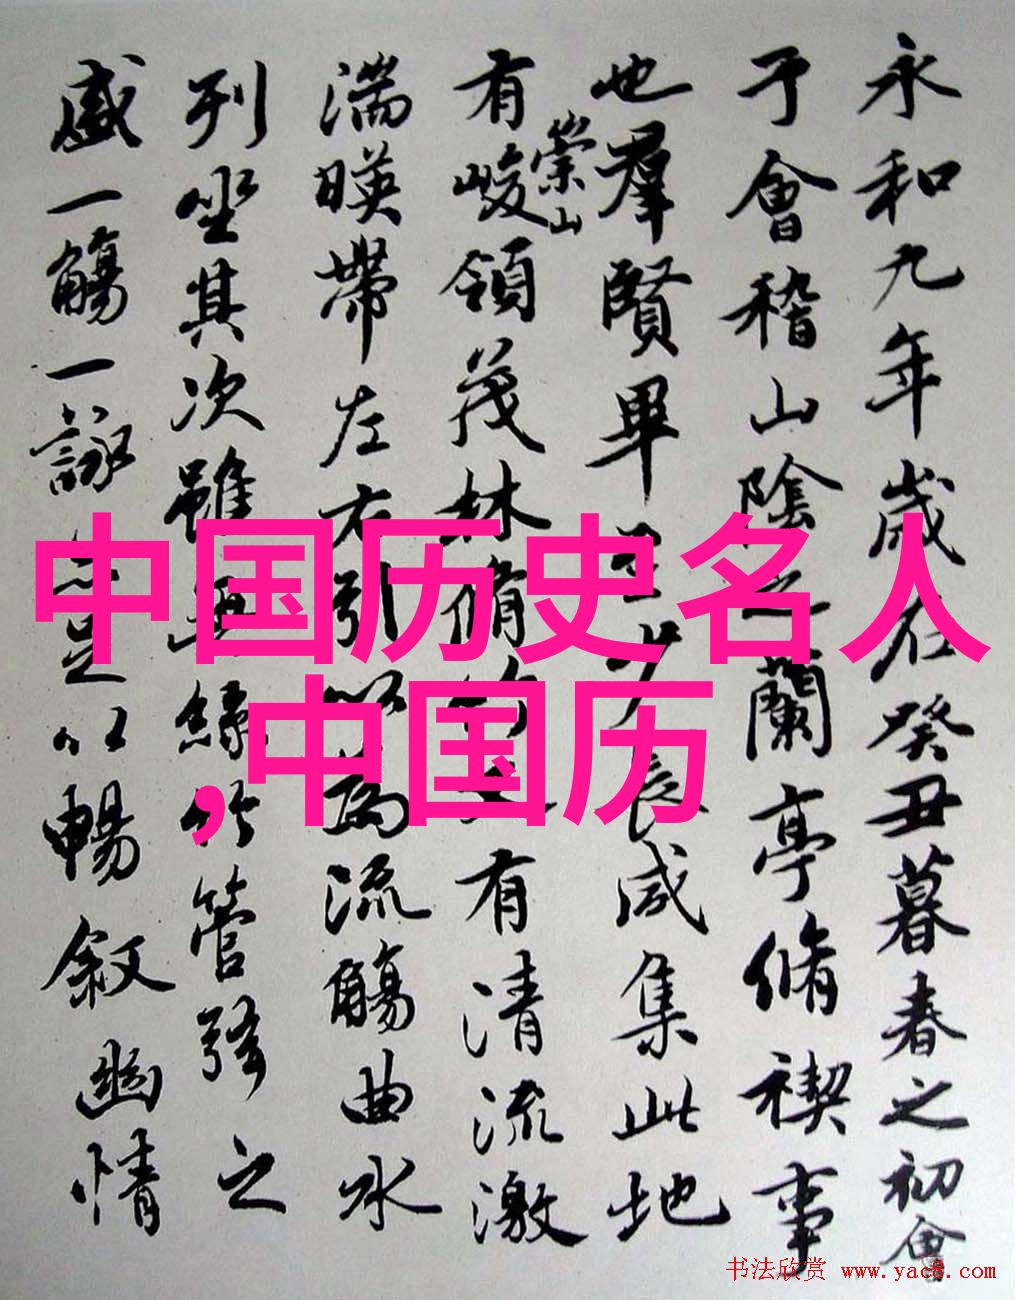 永和九年歲在癸丑暮春之初會
于會稽山陰之蘭亭脩禊事
也羣賢畢至少長咸集此地
有崇山峻領茂林脩竹又有清流激
湍暎帶左右引以為流觴曲水
列坐其次雖無絲竹管弦之
盛一觴一詠亦足以暢敘幽情
中国历史名人
,中国历
书法欣赏 www.yac8.com